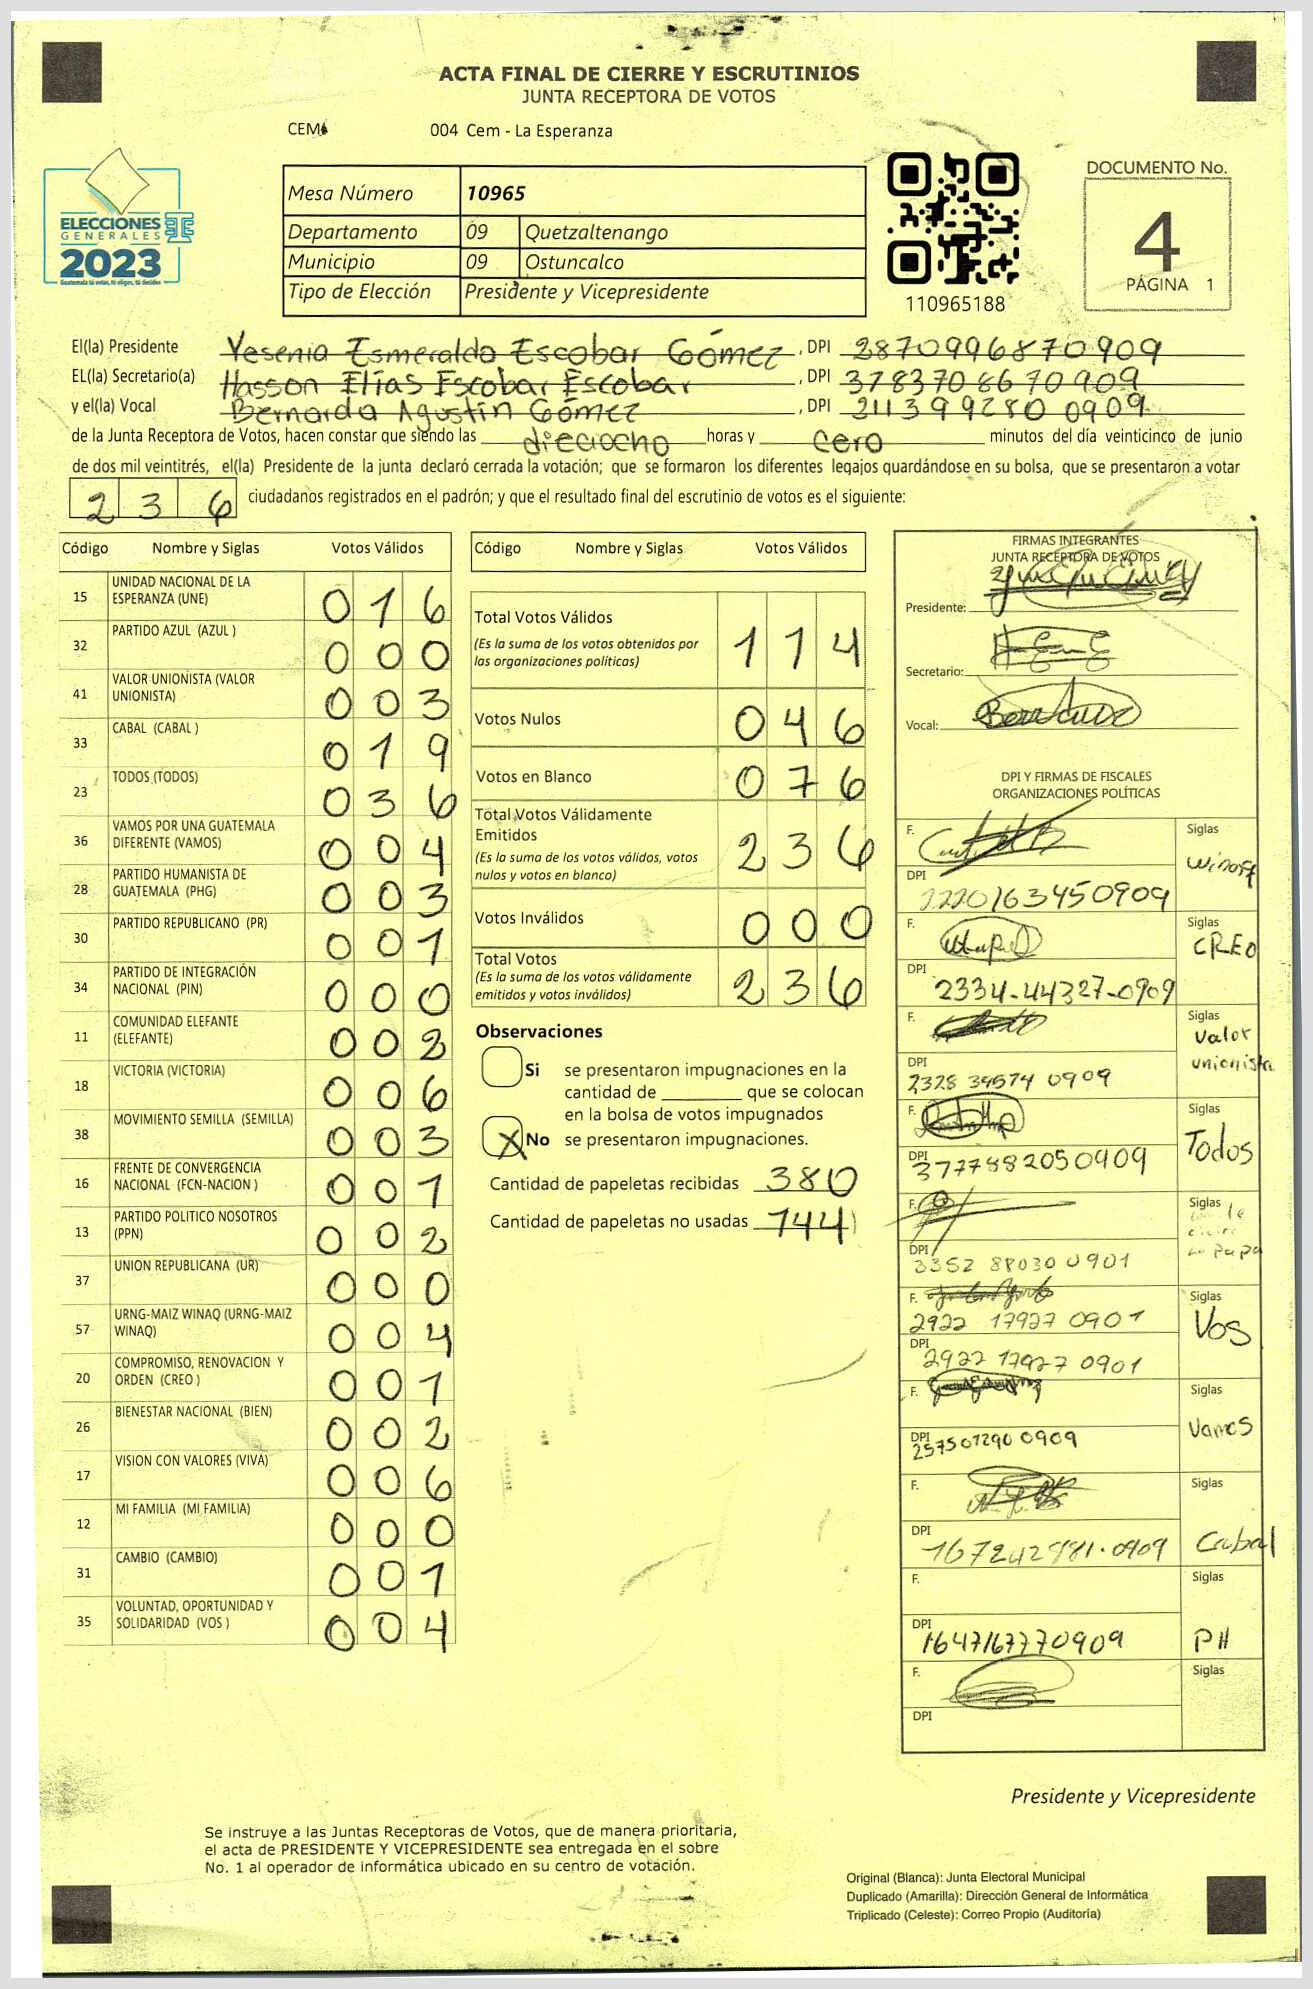 ACTA FINAL DE CIERRE Y ESCRUTINIOS
JUNTA RECEPTORA DE VOTOS
CEM 004 Cem - La Esperanza
ELECCIONES
GENERALES
2023
Guatemala tú votas, tú eliges, tú decides
Mesa Número 10965
Departamento 09 Quetzaltenango
Municipio 09 Ostuncalco
Tipo de Elección Presidente y Vicepresidente
110965188
DOCUMENTO No.
4
PÁGINA 1
El(la) Presidente Yesenia Esmeralda Escobar Gómez, DPI 2870996870909
EL(la) Secretario(a) Hasson Elías Escobar Escobar, DPI 3783708670909
y el(la) Vocal Bernarda Agustín Gómez, DPI 2113992800909
de la Junta Receptora de Votos, hacen constar que siendo las dieciocho horas y cero minutos del día veinticinco de junio
de dos mil veintitrés, el(la) Presidente de la junta declaró cerrada la votación; que se formaron los diferentes legajos quardándose en su bolsa, que se presentaron a votar
236 ciudadanos registrados en el padrón; y que el resultado final del escrutinio de votos es el siguiente:
Código Nombre y Siglas Votos Válidos
15 UNIDAD NACIONAL DE LA ESPERANZA (UNE) 016
32 PARTIDO AZUL (AZUL ) 000
41 VALOR UNIONISTA (VALOR UNIONISTA) 003
33 CABAL (CABAL ) 019
23 TODOS (TODOS) 036
36 VAMOS POR UNA GUATEMALA DIFERENTE (VAMOS) 004
28 PARTIDO HUMANISTA DE GUATEMALA (PHG) 003
30 PARTIDO REPUBLICANO (PR) 001
34 PARTIDO DE INTEGRACIÓN NACIONAL (PIN) 000
11 COMUNIDAD ELEFANTE (ELEFANTE) 002
18 VICTORIA (VICTORIA) 006
38 MOVIMIENTO SEMILLA (SEMILLA) 003
16 FRENTE DE CONVERGENCIA NACIONAL (FCN-NACION ) 001
13 PARTIDO POLITICO NOSOTROS (PPN) 002
37 UNION REPUBLICANA (UR) 000
57 URNG-MAIZ WINAQ (URNG-MAIZ WINAQ) 004
20 COMPROMISO, RENOVACION Y ORDEN (CREO ) 001
26 BIENESTAR NACIONAL (BIEN) 002
17 VISION CON VALORES (VIVA) 006
12 MI FAMILIA (MI FAMILIA) 000
31 CAMBIO (CAMBIO) 001
35 VOLUNTAD, OPORTUNIDAD Y SOLIDARIDAD (VOS ) 004
Código Nombre y Siglas Votos Válidos
Total Votos Válidos 114
(Es la suma de los votos obtenidos por
las organizaciones políticas)
Votos Nulos 046
Votos en Blanco 076
Total Votos Válidamente
Emitidos 236
(Es la suma de los votos válidos, votos
nulos y votos en blanco)
Votos Inválidos 000
Total Votos 236
(Es la suma de los votos válidamente
emitidos y votos inválidos)
Observaciones
Si se presentaron impugnaciones en la
cantidad de ________ que se colocan
en la bolsa de votos impugnados
X No se presentaron impugnaciones.
Cantidad de papeletas recibidas 380
Cantidad de papeletas no usadas 144
FIRMAS INTEGRANTES
JUNTA RECEPTORA DE VOTOS
Presidente:
Secretario:
Vocal:
DPI Y FIRMAS DE FISCALES
ORGANIZACIONES POLÍTICAS
F. Siglas
DPI 2220163450909 winaq
F. Siglas CREO
DPI 2334-44327-0909
F. Siglas Valor unionista
DPI 2328 39574 0909
F. Siglas Todos
DPI 3777882050909
F. Siglas
DPI 3352 88030 0901
F. 2922 17927 0901 Siglas Vos
DPI 2922 17927 0901
F. Siglas Vamos
DPI 257501290 0909
F. Siglas
DPI 167242981.0909 Cabal
F. Siglas
DPI 1647167770909 PH
F. Siglas
DPI
Presidente y Vicepresidente
Se instruye a las Juntas Receptoras de Votos, que de manera prioritaria,
el acta de PRESIDENTE Y VICEPRESIDENTE sea entregada en el sobre
No. 1 al operador de informática ubicado en su centro de votación.
Original (Blanca): Junta Electoral Municipal
Duplicado (Amarilla): Dirección General de Informática
Triplicado (Celeste): Correo Propio (Auditoría)